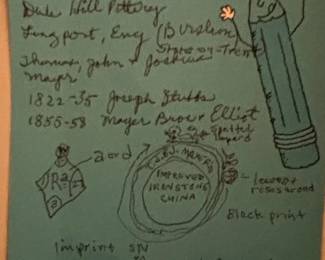 Dale Hill Pottery
Longport, Eng (Burslem
Stoke-on-Trent
Thomas, John & Joshua
Mayer
1822-35 Joseph Stubbs
1855-58 Mayer Bros & Elliot
and
Spotted
T.J. & J. MAYER
IMPROVED
IRONSTONE
CHINA
Black print
imprint